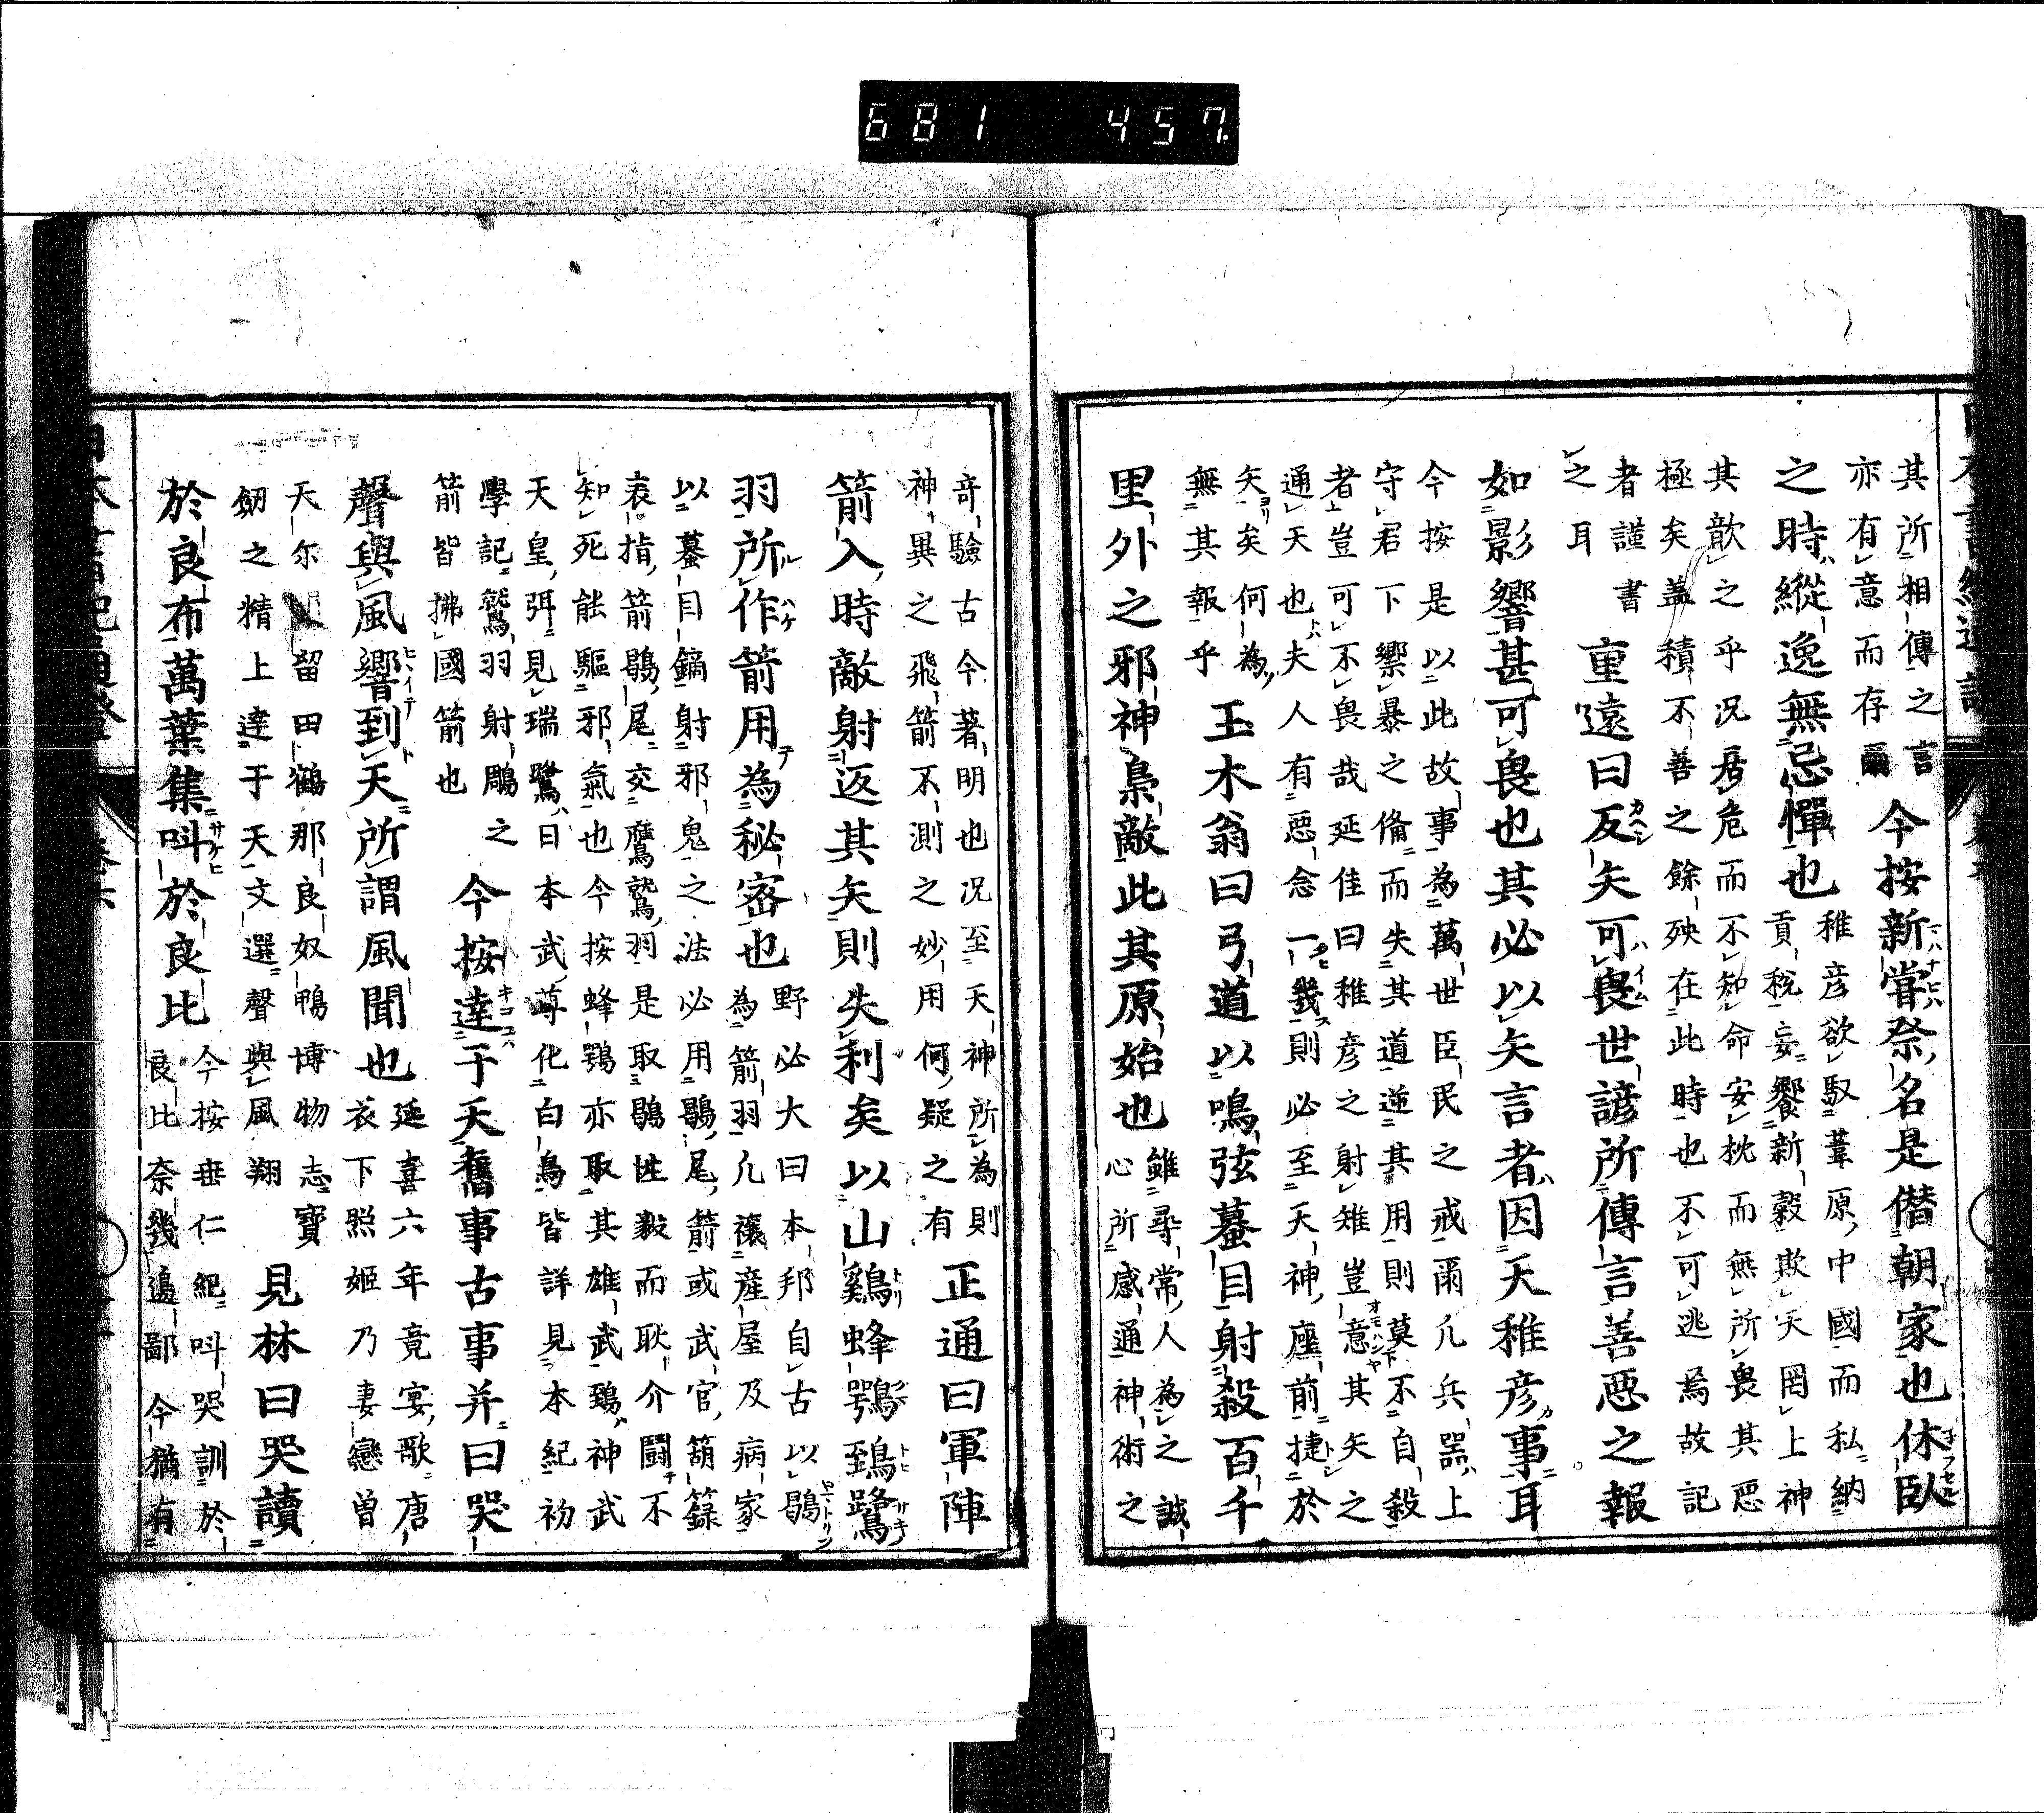 681 457.
其所相傳之言
亦有意而存爾
今按新嘗祭名是僭朝家也休臥
之時縱逸無忌憚也
稚彦欲馭葦原中國而私納
貢稅妄饗新穀欺天罔上神
其歆之乎況居危而不知命安枕而無所畏其惡
極矣盖積不善之餘殃在此時也不可逃焉故記
者謹書
之耳
重遠曰反矢可畏世諺所傳言善惡之報
如影響甚可畏也其必以矢言者因天稚彦事耳
今按是以此故事為萬世臣民之戒爾凡兵器上
守君下禦暴之備而失其道逆其用則莫不自殺
者豈可不畏哉延佳曰稚彦之射雉豈意其矢之
通天也夫人有惡念一幾則必至天神座前捷於
矢矣何為
無其報乎
玉木翁曰弓道以鳴弦蟇目射殺百千
里外之邪神梟敵此其原始也
雖尋常人為之誠
心所感通神術之
奇驗古今著明也況至天神所為則
神異之飛箭不測之妙用何疑之有
正通曰軍陣
箭入時敵射返其矢則失利矣以山鷄蜂鶚鵄鷺
羽所作箭用為秘密也
野必大曰本邦自古以鶡
為箭羽凡禳產屋及病家
以蟇目鏑射邪鬼之法必用鶡尾箭或武官箶簶
表指箭鶡尾交鷹鷲羽是取鶡性毅而耿介鬪不
知死能驅邪氣也今按蜂鶚亦取其雄武鵄神武
天皇弭見瑞鷺日本武尊化白鳥皆詳見本紀初
學記鷲羽射鵰之
箭皆拂國箭也
今按達于天舊事古事并曰哭
聲與風響到天所謂風聞也
延喜六年竟宴歌唐
衣下照姬乃妻戀曾
天尓留田鶴那良奴鴨博物志寶
劒之精上達于天文選聲與風翔
見林曰哭讀
於良布萬葉集叫於良比
今按垂仁紀叫哭訓於
良比奈幾邊鄙今猶有